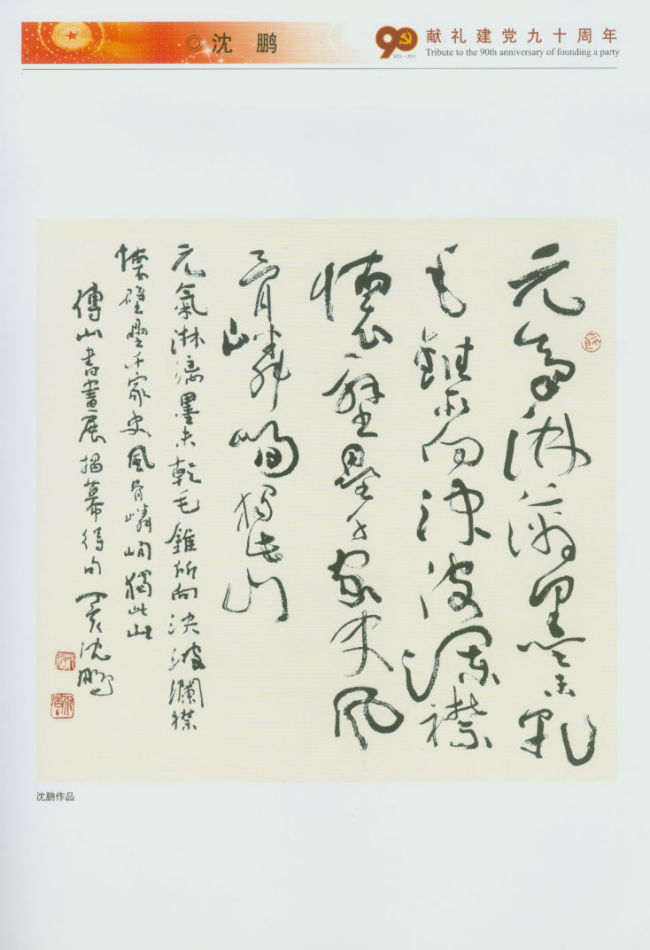 ◎ 沈 鹏
90
1921-2011
献礼建党九十周年
Tribute to the 90th anniversary of founding a party
元氣淋漓墨未乾
毛錐所向決波瀾襟
懷壁壘千家史風
骨嶙峋獨此山
元氣淋漓墨未乾毛錐所向決波瀾襟
懷壁壘千家史風骨嶙峋獨此山
傅山書畫展揭幕得句 丁亥沈鵬
沈鹏作品